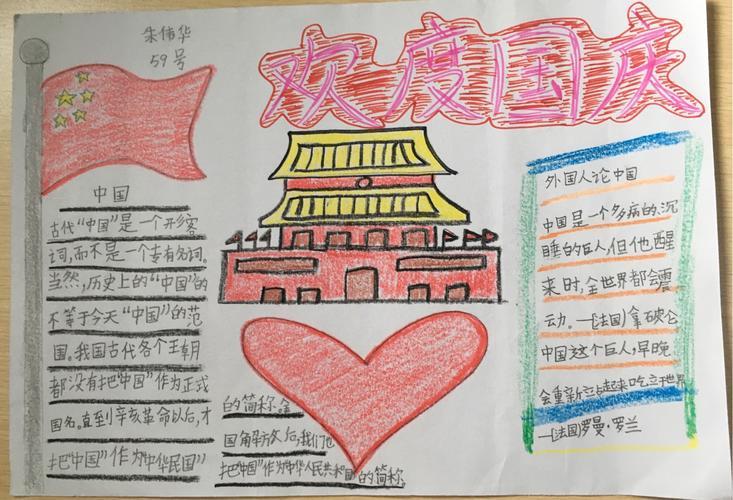 朱伟华
59号
欢度国庆
中国
古代“中国”是一个形容
词,而不是一个专有名词.
当然,历史上的“中国”的
不等于今天“中国”的范
围。我国古代各个王朝
都没有把“中国”作为正式
国名。直到辛亥革命以后,才
把“中国”作为“中华民国”
的简称。
国解放后,我们也
把“中国”作为“中华人民共和国”的简称.
外国人论中国
中国是一个多病的沉
睡的巨人,但他醒
来时,全世界都会震
动。—(法国)拿破仑
中国这个巨人,早晚
会重新立起来吃立于世界
—(法国)罗曼·罗兰